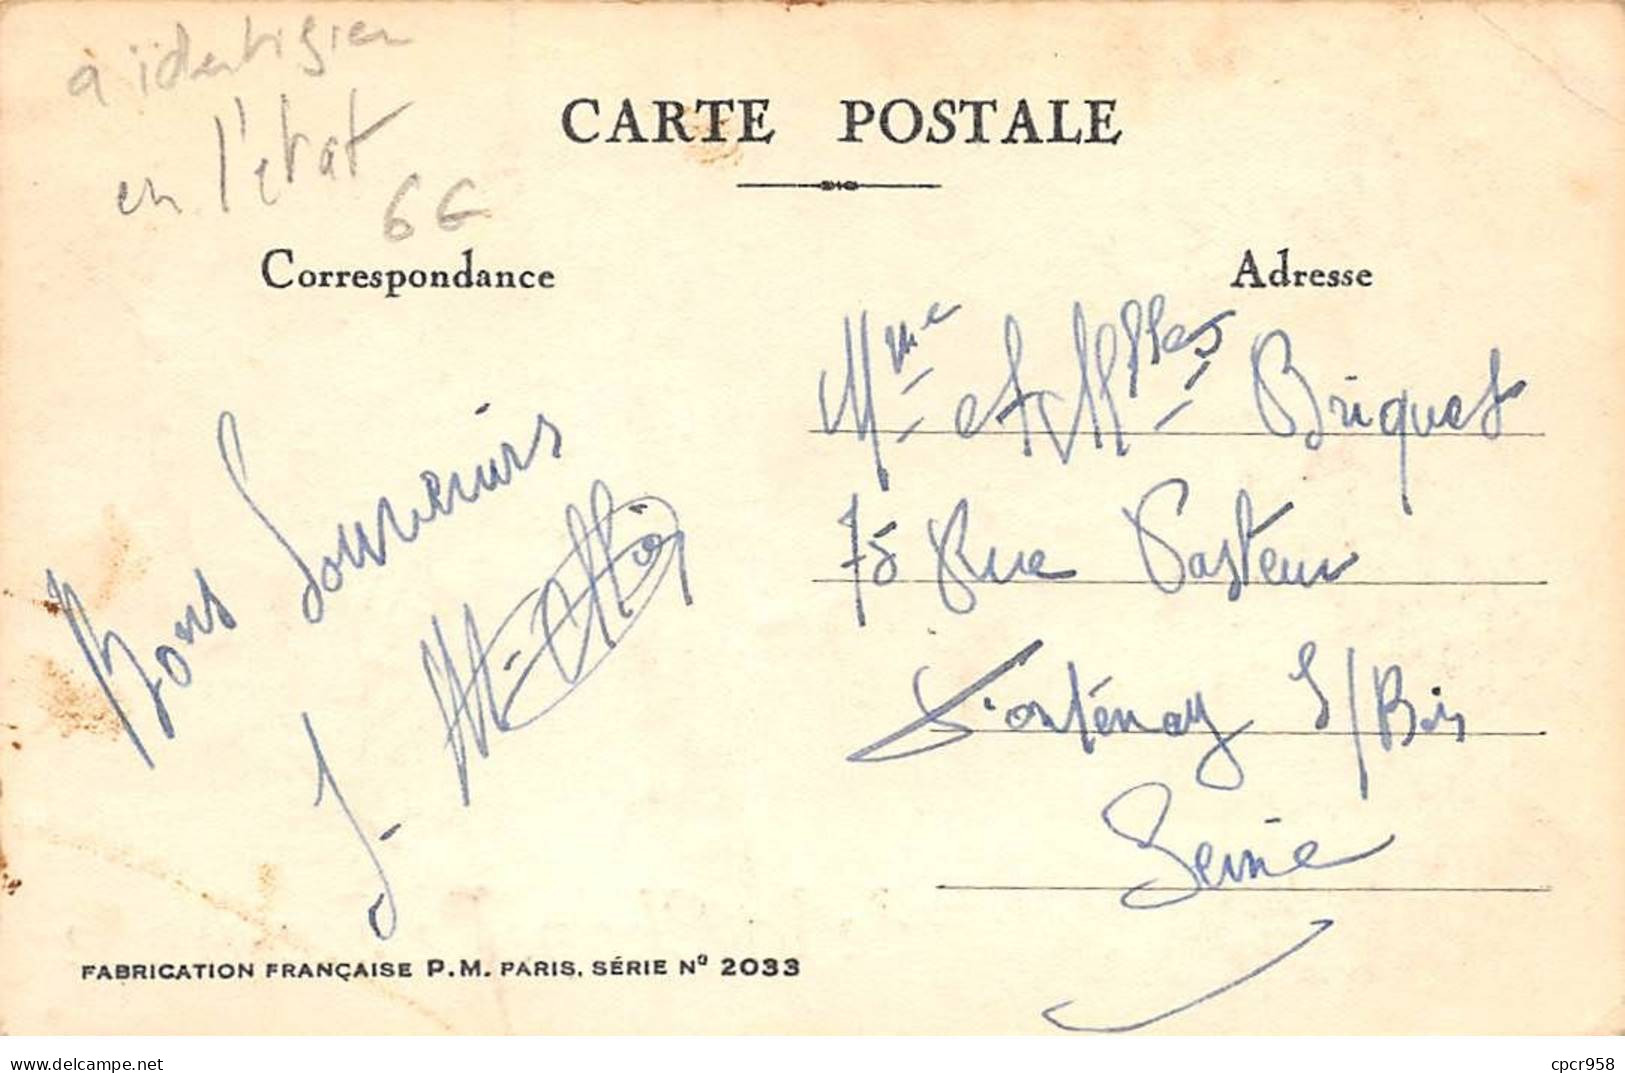 à identifier
en l'état
6€
CARTE POSTALE
Correspondance
Adresse
Bons Souvenirs
J.
Mme et Mlles Briquet
75 Rue Pasteur
Fontenay S/Bois
Seine
FABRICATION FRANÇAISE P.M. PARIS. SÉRIE Nº 2033
delcampe.net
cpcr958